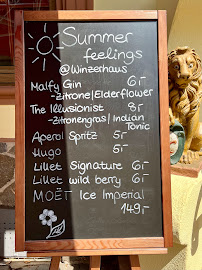 Summer
feelings
@Winzerhaus
Malfy Gin 6,-
-Zitrone/Elderflower
The Illusionist 8,-
-Zitronengras/Indian
Tonic
Aperol Spritz 5,-
Hugo 5,-
Lillet Signature 6,-
Lillet wild berry 6,-
MOËT Ice Imperial
149,-